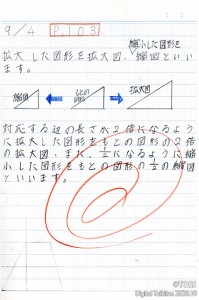 9/4 P.103
縮小した図形を
拡大した図形を拡大図、縮図といい
ます。
縮図 もとの図形 拡大図
対応する辺の長さが2倍になるよう
に拡大した図形をもとの図形の2倍
の拡大図、また、1/2になるように縮
小した図形をもとの図形の1/2の縮図
といいます。
©TOSS
Digital Talkline 2020.10